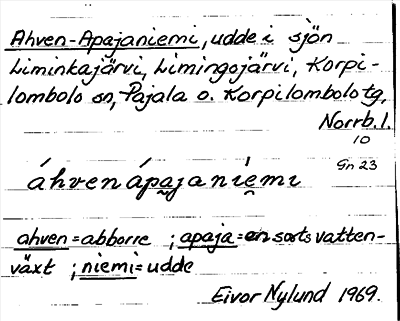 Ahven-Apajaniemi, udde i sjön
Liminkajärvi, Limingojärvi, Korpi-
lombolo sn, Pajala o. Korpilombolo tg,
Norrb. l.
10
Gn 23
áhvenápajaníemi
ahven=abborre ; apaja=en sorts vatten-
växt ; niemi=udde
Eivor Nylund 1969.